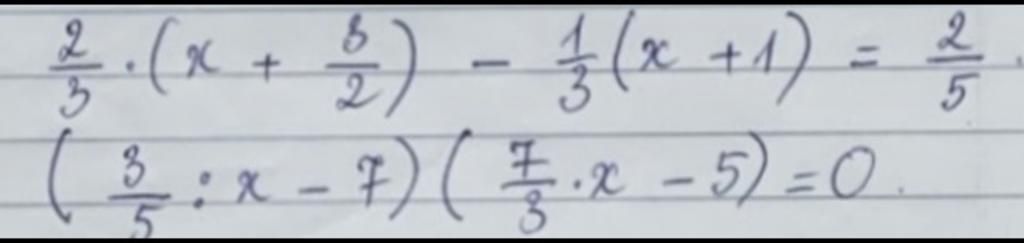 2/3 . (x + 3/2) - 1/3 (x + 1) = 2/5.
(3/5 : x - 7) (7/3 . x - 5) = 0.